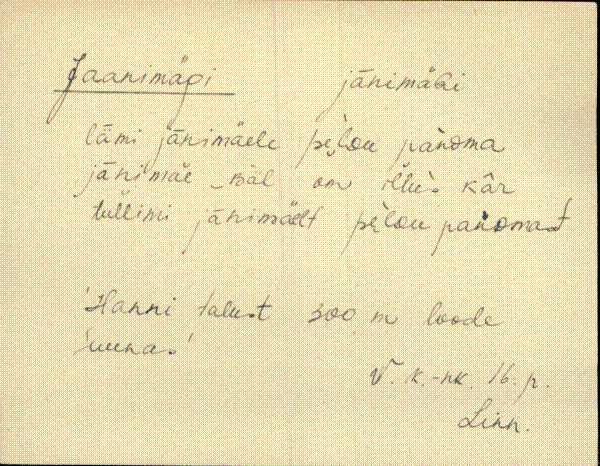 Jaanimägi jānimäGi
lāmi jānimäele pèlou pànoma
jānimäe _näl om kàr
tullimi jānimäelt pèlou panomast
'Hanni talust 300 m loode
suunas'
V. k.-nk. 16. p.
Linn.